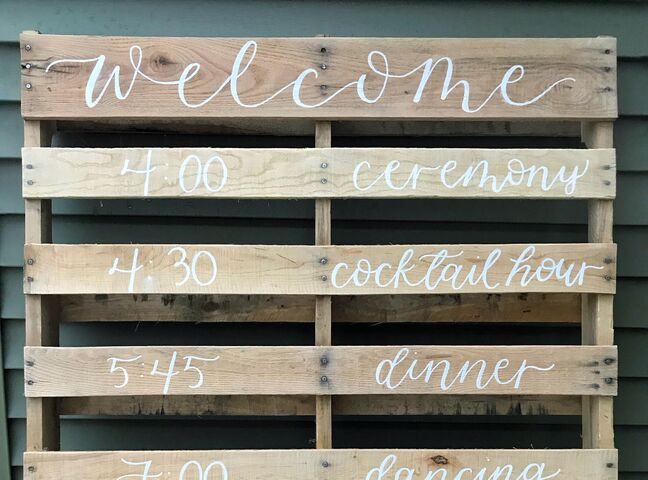 welcome
4:00 ceremony
4:30 cocktail hour
5:45 dinner
7:00 dancing